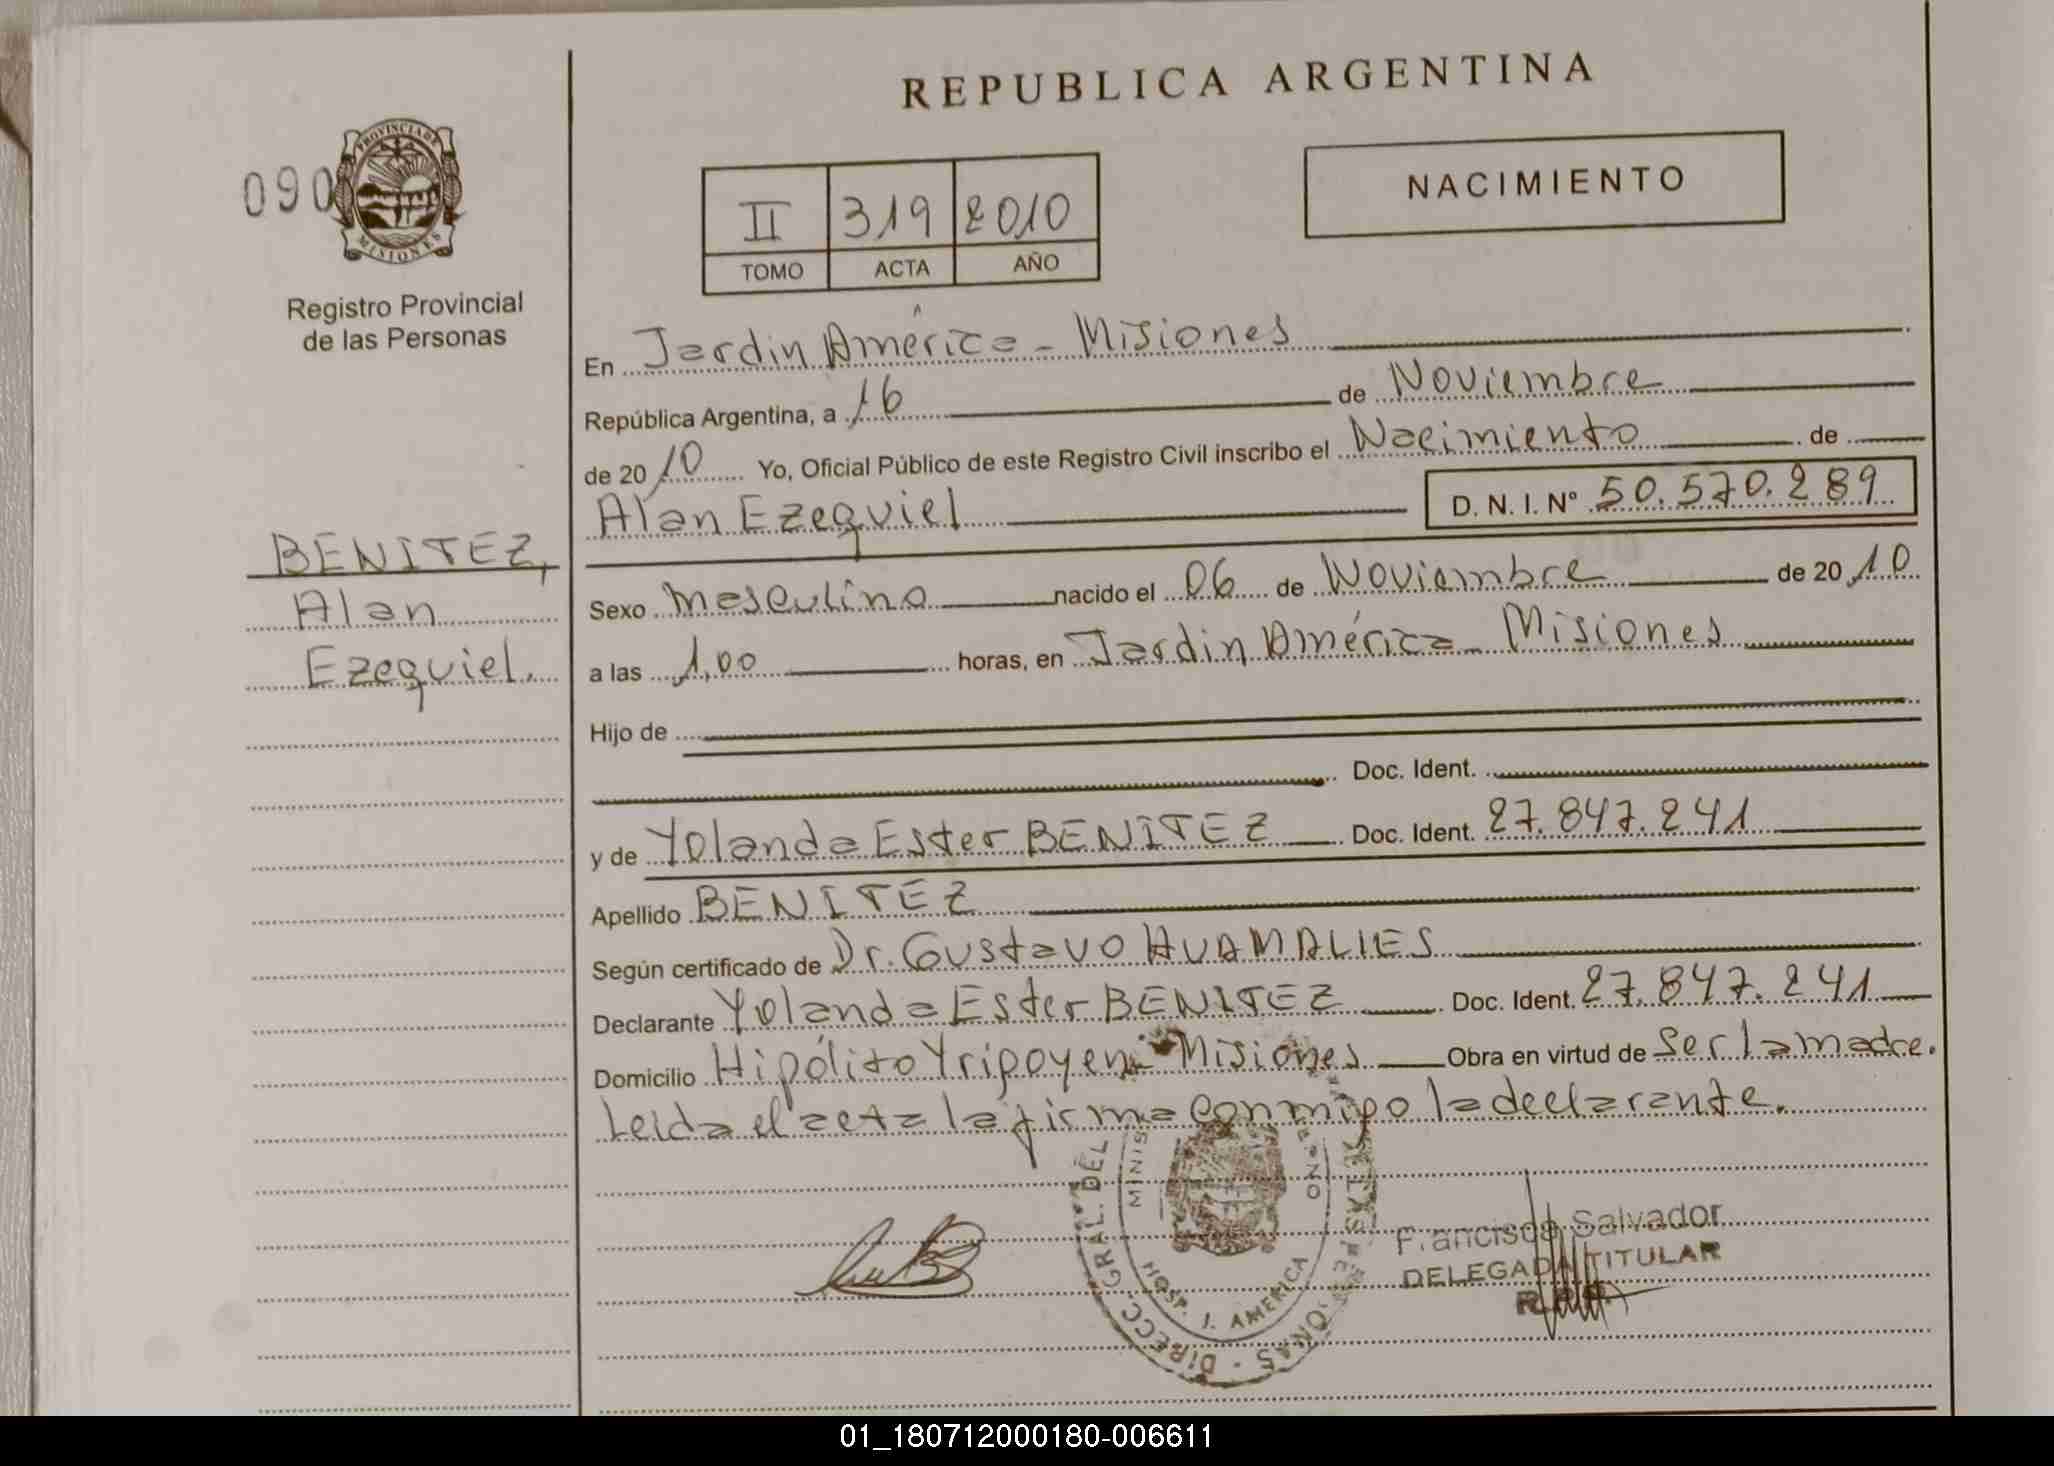 REPUBLICA ARGENTINA
090
PROVINCIA DE
MISIONES
Registro Provincial
de las Personas
II 319 2010
TOMO ACTA AÑO
NACIMIENTO
En Jardin América - Misiones
República Argentina, a 16 de Noviembre
de 2010 Yo, Oficial Público de este Registro Civil inscribo el Nacimiento de
Alan Ezequiel D. N. I. Nº 50.570.289
BENITEZ,
Alan
Ezequiel.
Sexo Masculino nacido el 06 de Noviembre de 2010
a las 1,00 horas, en Jardin América - Misiones
Hijo de
Doc. Ident.
y de Yolanda Ester BENITEZ Doc. Ident. 27.847.241
Apellido BENITEZ
Según certificado de Dr. Gustavo HUAMALIES
Declarante Yolanda Ester BENITEZ Doc. Ident. 27.847.241
Domicilio Hipólito Yrigoyen - Misiones Obra en virtud de ser la madre.
Leida el acta la firma conmigo la declarante.
DIRECC. GRAL. DEL
MINIS
HOSP. J. AMERICA
Salvador
DELEGADA TITULAR
01_180712000180-006611